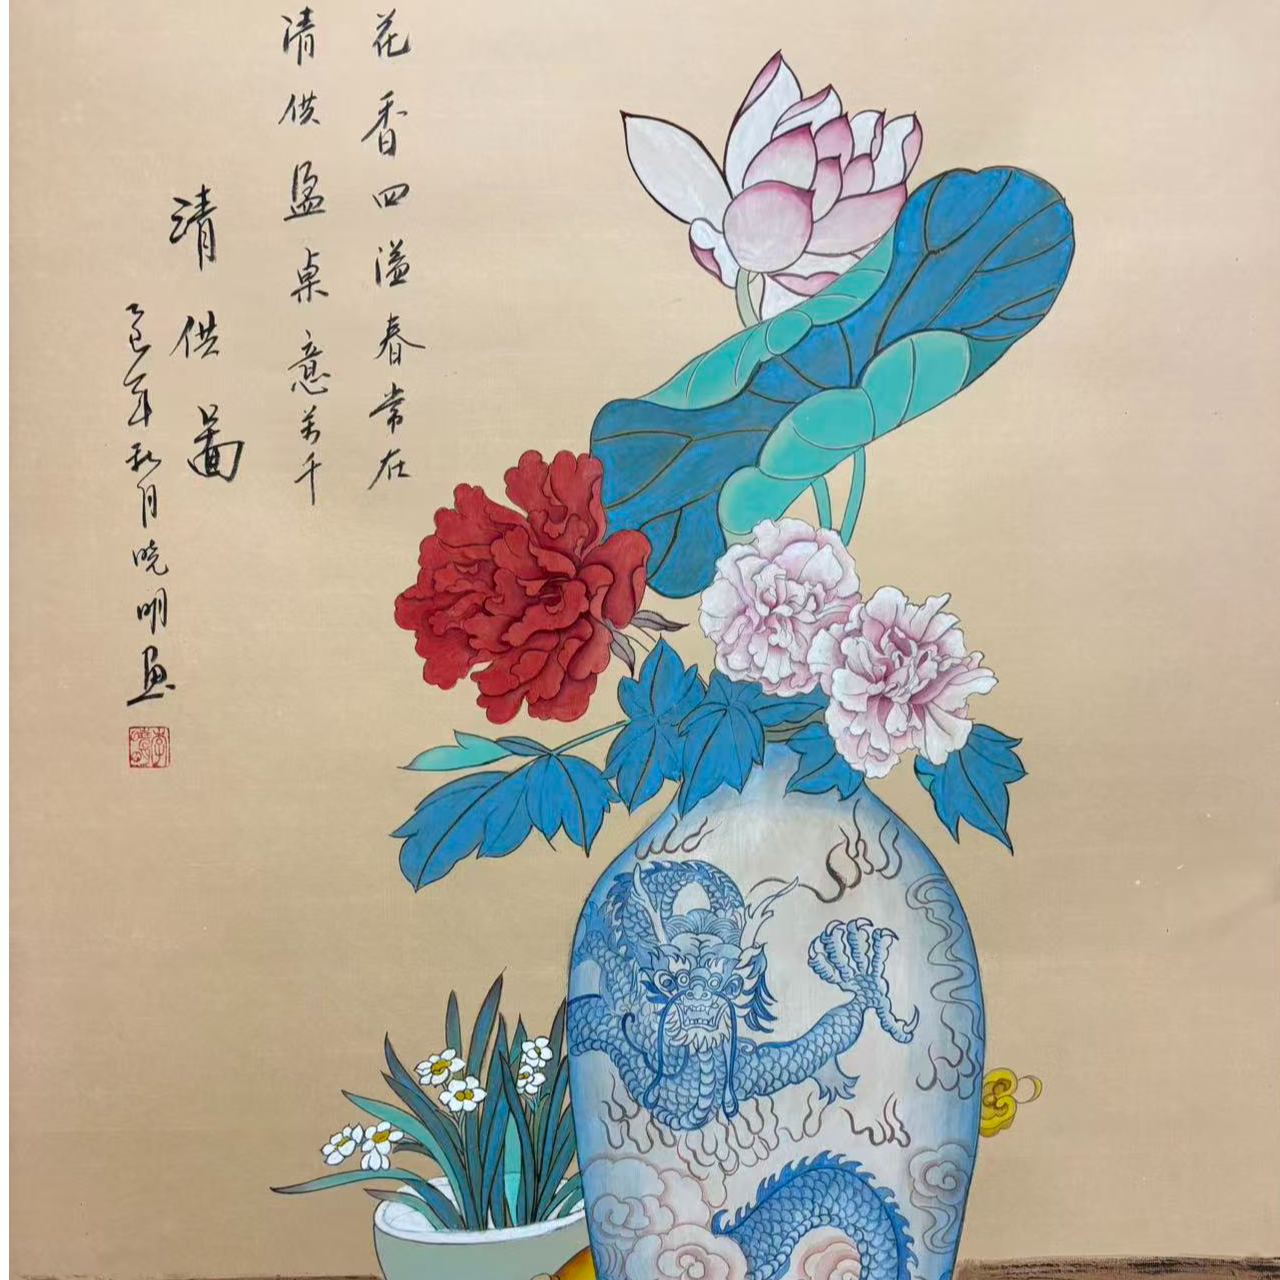 花香四溢春常在
清供盈桌意万千
清供图
乙巳年秋月晓明画
李晓明